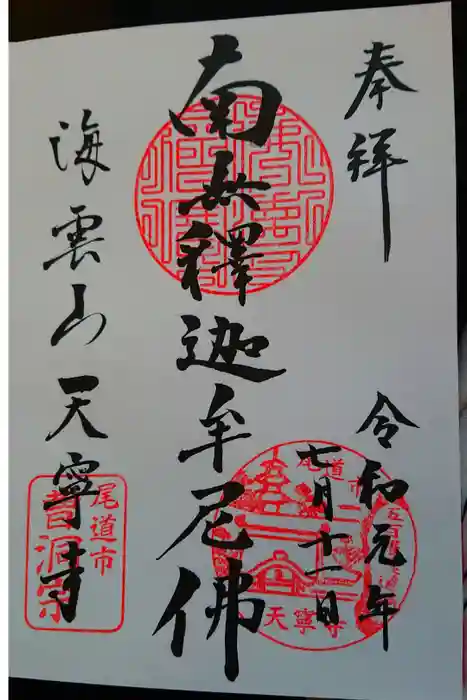 奉拝
令和元年
七月十一日
南無釋迦牟尼佛
海雲山天寧寺
尾道市
天寧寺
尾道市
曹洞宗